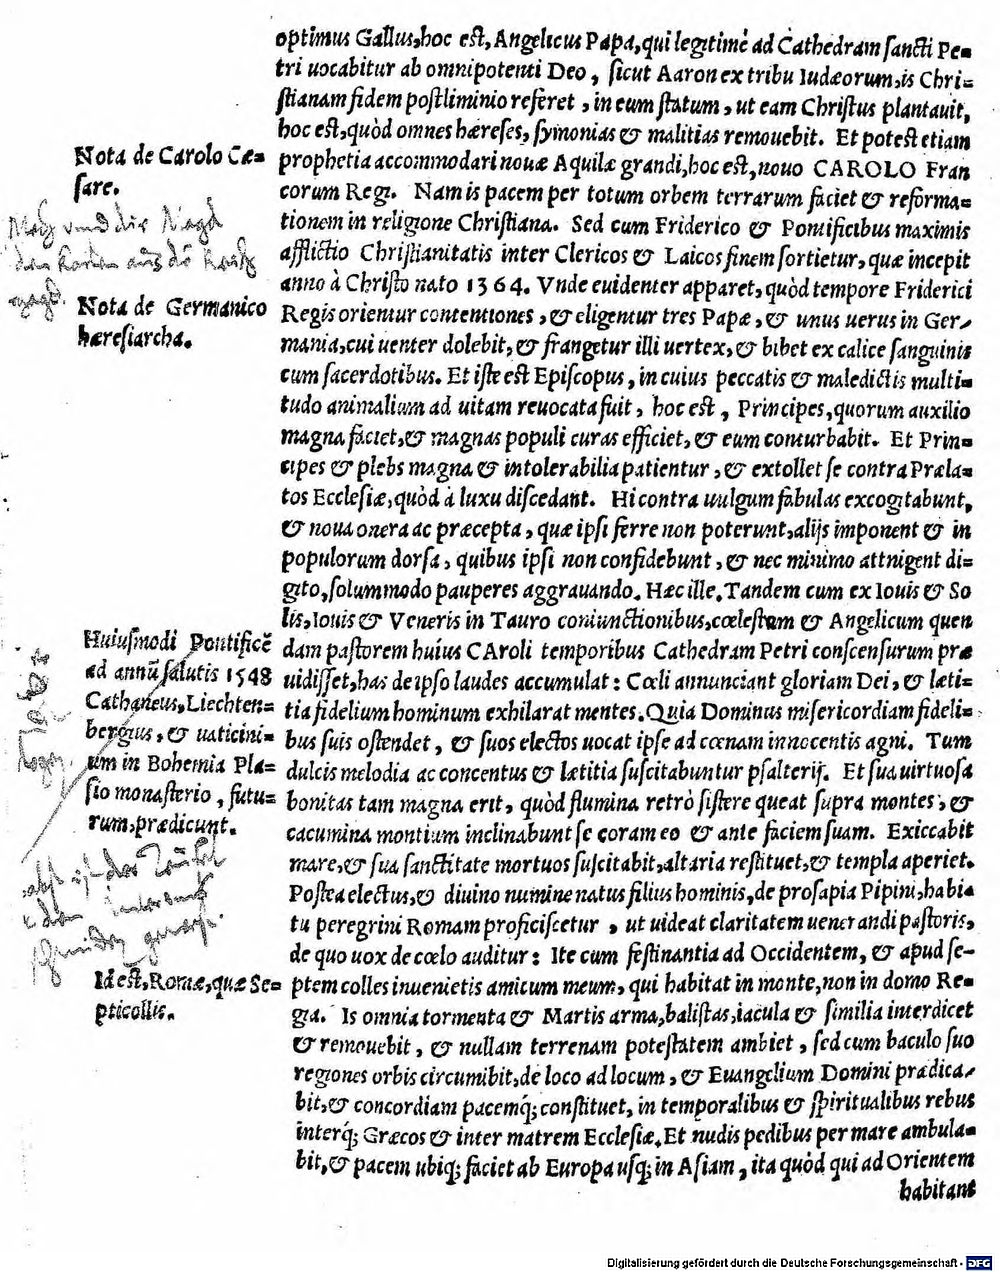 optimus Gallus,hoc est, Angelicus Papa,qui legitimè ad Cathedram sancti Pe=
tri uocabitur ab omnipotenti Deo, sicut Aaron ex tribu Iudæorum,is Chri=
stianam fidem postliminio referet, in eum statum, ut eam Christus plantauit,
hoc est,quòd omnes hæreses, symonias & malitias remouebit. Et potest etiam
Nota de Carolo Cæ=
sare.
prophetia accommodari nouæ Aquilæ grandi,hoc est, nouo CAROLO Fran
corum Regi. Nam is pacem per totum orbem terrarum faciet & reforma=
tionem in religione Christiana. Sed cum Friderico & Pontificibus maximis
afflictio Christianitatis inter Clericos & Laicos finem sortietur, quæ incepit
anno à Christo nato 1364. Vnde euidenter apparet, quòd tempore Friderici
Nota de Germanico
hæresiarcha.
Regis orientur contentiones, & eligentur tres Papæ, & unus uerus in Ger=
mania,cui uenter dolebit, & frangetur illi uertex, & bibet ex calice sanguinis
cum sacerdotibus. Et iste est Episcopus, in cuius peccatis & maledictis multi=
tudo animalium ad uitam reuocata fuit, hoc est, Principes,quorum auxilio
magna faciet,& magnas populi curas efficiet, & eum conturbabit. Et Prin=
cipes & plebs magna & intolerabilia patientur, & extollet se contra Præla=
tos Ecclesiæ,quòd à luxu discedant. Hi contra uulgum fabulas excogitabunt,
& noua onera ac præcepta, quæ ipsi ferre non poterunt,alijs imponent & in
populorum dorsa, quibus ipsi non confidebunt, & nec minimo attnigent di=
gito,solummodo pauperes aggrauando. Hæc ille. Tandem cum ex Iouis & So
lis,Iouis & Veneris in Tauro coniunctionibus,cœlestem & Angelicum quen
Huiusmodi Pontificē
ad annū salutis 1548
Cathaneus,Liechten=
bergius, & uaticini=
um in Bohemia Pla=
sio monasterio, futu=
rum,prædicunt.
dam pastorem huius CAroli temporibus Cathedram Petri conscensurum præ
uidisset,has de ipso laudes accumulat: Cœli annunciant gloriam Dei, & læti=
tia fidelium hominum exhilarat mentes. Quia Dominus misericordiam fideli=
bus suis ostendet, & suos electos uocat ipse ad cœnam innocentis agni. Tum
dulcis melodia ac concentus & lætitia suscitabuntur psalterij. Et sua uirtuosa
bonitas tam magna erit, quòd flumina retrò sistere queat supra montes, &
cacumina montium inclinabunt se coram eo & ante faciem suam. Exiccabit
mare,& sua sanctitate mortuos suscitabit,altaria restituet,& templa aperiet.
Postea electus,& diuino numine natus filius hominis,de prosapia Pipini,habi=
tu peregrini Romam proficiscetur, ut uideat claritatem uenerandi pastoris,
de quo uox de cœlo auditur: Ite cum festinantia ad Occidentem, & apud se=
Id est, Romæ,quæ Se=
pticollis.
ptem colles inuenietis amicum meum, qui habitat in monte,non in domo Re=
gia. Is omnia tormenta & Martis arma,balistas,iacula & similia interdicet
& remouebit, & nullam terrenam potestatem ambiet, sed cum baculo suo
regiones orbis circumibit,de loco ad locum, & Euangelium Domini prædica=
bit,& concordiam pacemq́; constituet, in temporalibus & spiritualibus rebus
interq́; Græcos & inter matrem Ecclesiæ. Et nudis pedibus per mare ambula=
bit,& pacem ubiq; faciet ab Europa usq; in Asiam, ita quòd qui ad Orientem
habitant
Digitalisierung gefördert durch die Deutsche Forschungsgemeinschaft - DFG